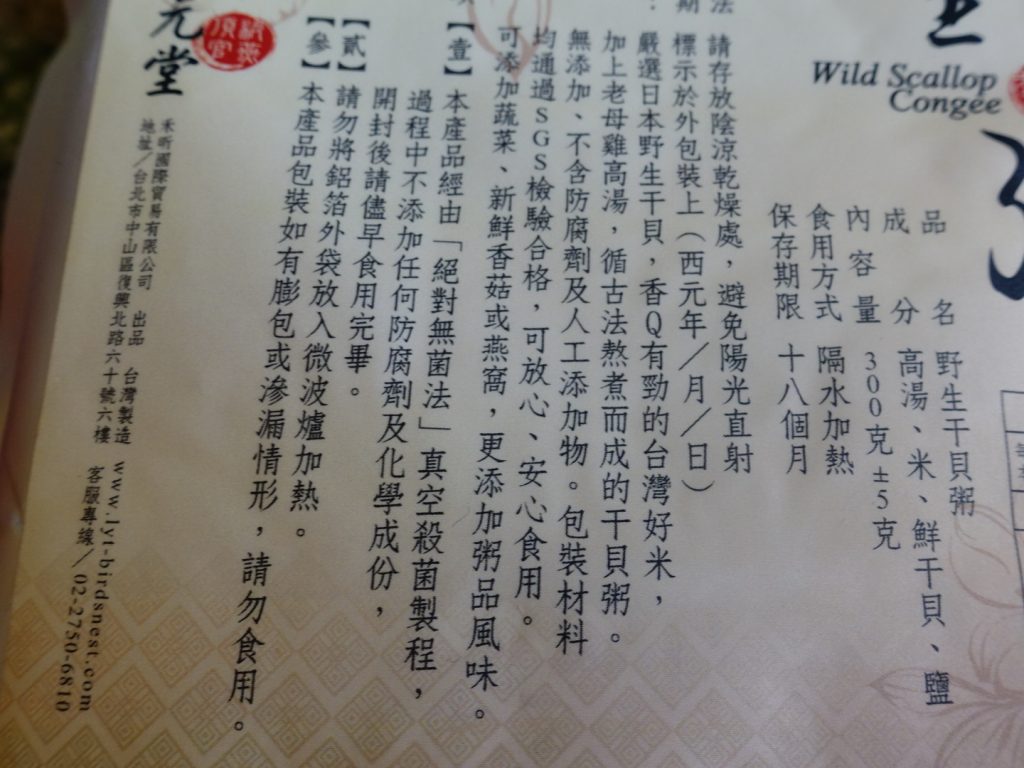 Wild Scallop
Congee
品名 野生干貝粥
成分 高湯、米、鮮干貝、鹽
內容量 300克±5克
食用方式 隔水加熱
保存期限 十八個月
法
請存放陰涼乾燥處，避免陽光直射
期
標示於外包裝上（西元年／月／日）
：
嚴選日本野生干貝，香Q有勁的台灣好米，
加上老母雞高湯，循古法熬煮而成的干貝粥。
無添加、不含防腐劑及人工添加物。包裝材料
均通過SGS檢驗合格，可放心、安心食用。
可添加蔬菜、新鮮香菇或燕窩，更添加粥品風味。
【壹】本產品經由「絕對無菌法」真空殺菌製程，
過程中不添加任何防腐劑及化學成份，
開封後請儘早食用完畢。
【貳】請勿將鋁箔外袋放入微波爐加熱。
【參】本產品包裝如有膨包或滲漏情形，請勿食用。
元堂
禾昕國際貿易有限公司 出品 台灣製造 www.lyt-birdsnest.com
地址／台北市中山區復興北路六十號六樓 客服專線／02-2750-6810